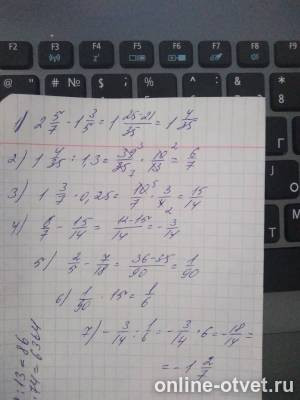 F2 F3 F4 F5 F6 F7 F8 F9
# ¤ % & /
1) 2 5/7 - 1 3/5 = 1 (25-21)/35 = 1 4/35
2) 1 4/35 : 1,3 = 39/35 · 10/13 = 6/7
3) 1 3/7 · 0,25 = 10/7 · 3/4 = 15/14
4) 6/7 - 15/14 = (12-15)/14 = -3/14
5) 2/5 - 7/18 = (36-35)/90 = 1/90
6) 1/90 · 15 = 1/6
7) -3/14 : 1/6 = -3/14 · 6 = -18/14 =
= -1 2/7
· 13 = 86
· 74 = 6364
online-otvet.ru